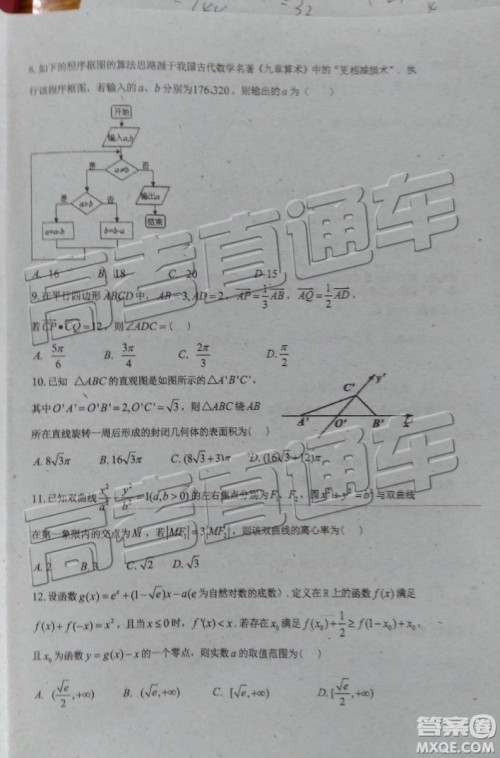 8. 如下的程序框图的算法思路源于我国古代数学名著《九章算术》中的“更相减损术”. 执
行该程序框图，若输入的 a、b 分别为176,320，则输出的 a 为（ ）
开始
输入a,b
是 a≠b 否
是 a>b 否 输出a
a=a-b b=b-a 结束
A. 16 B. 18 C. 20 D.15
9.在平行四边形 ABCD 中，AB=3, AD=2, AP=1/3 AB, AQ=1/2 AD,
若CP•CQ=12，则∠ADC=（ ）
A. 5π/6 B. 3π/4 C. 2π/3 D. π/2
10.已知 △ABC 的直观图是如图所示的 △A'B'C'，
其中O'A'=O'B'=2,O'C'=√3，则△ABC 绕
所在直线旋转一周后形成的封闭几何体的表面积为（ ）
A. 8√3π B. 16√3π C. (8√3+3)π D. (16√3+12)π
y'
C'
A' O' B' x'
11.已知双曲线 x²/a² y²/b² =1(a,b>0)的左右焦点分别为F₁、F₂，圆x²+y²=b²与双曲线
在第一象限内的交点为M，若|MF₁|=3|MF₂|，则该双曲线的离心率为（ ）
A. 2 B. 3 C. √2 D. √3
12. 设函数 g(x)=eˣ+(1-√e)x-a(e 为自然对数的底数). 定义在 R 上的函数 f(x)满足
f(x)+f(-x)=x²，且当 x≤0 时，f'(x)<x. 若存在 满足 f(x₀)+1/2≥f(1-x₀)+x₀，
且 x₀ 为函数 y=g(x)-x 的一个零点，则实数 a 的取值范围为（ ）
A. (√e/2,+∞) B. (√e,+∞) C. [√e,+∞) D. [√e/2,+∞)
高考直通车
高考直通车
答案圈
MXQE.COM